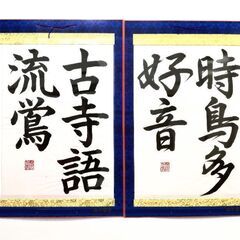 時鳥多
好音
古寺語
流鶯